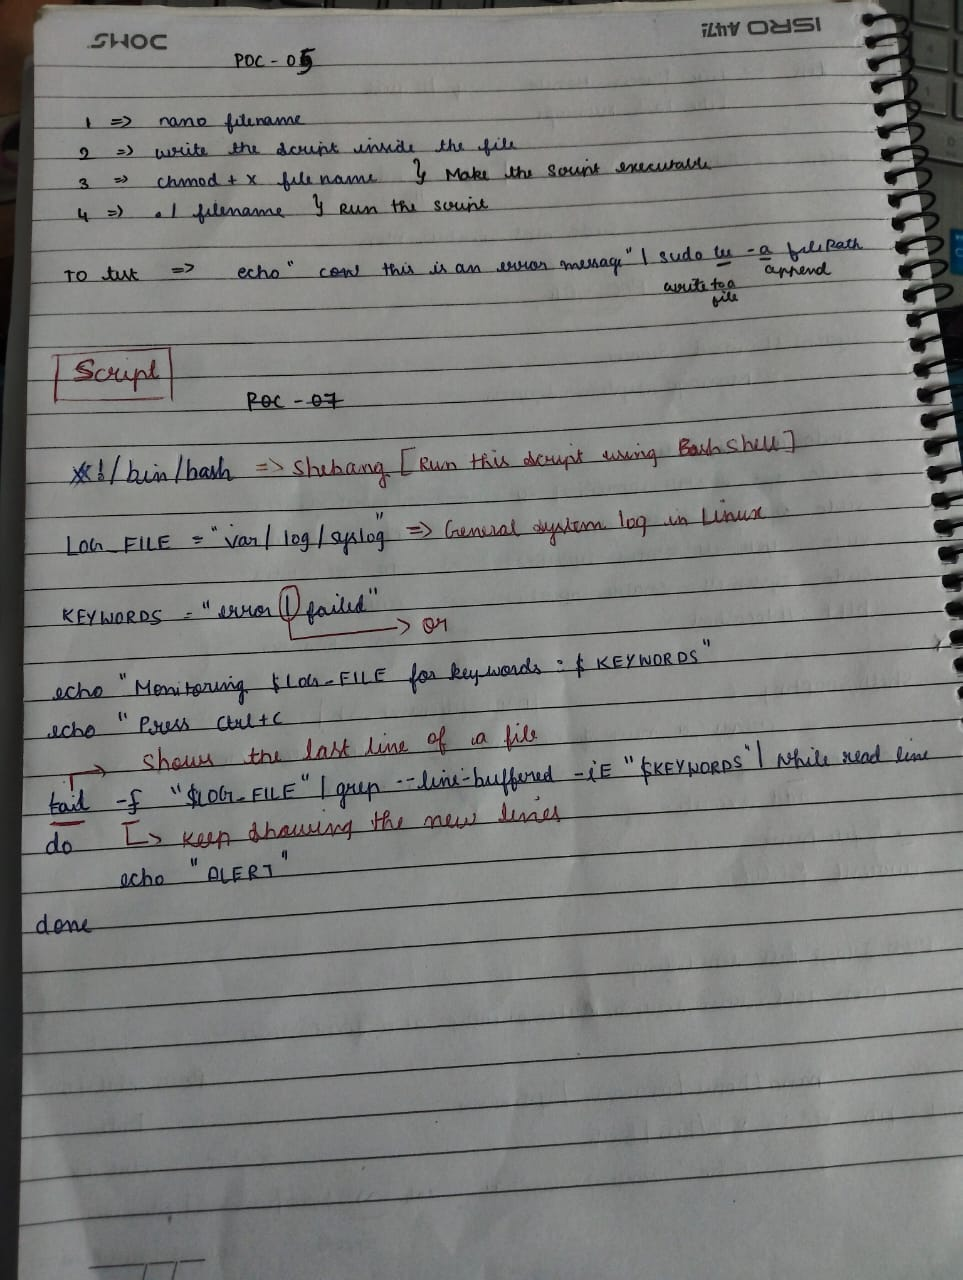 ISRO A47:
DOMS
POC - 05
1 => nano filename
2 => write the script inside the file
3 => chmod + x file name } Make the script executable
4 => ./ filename } Run the script
TO test => echo " this is an error message" | sudo tee -a filePath
write to a file
append
Script
POC - 07
#!/bin/bash => Shebang [Run this script using Bash Shell]
LOG_FILE = "var/log/syslog" => General system log in Linux
KEYWORDS = "error | failed"
-> or
echo "Monitoring $LOG-FILE for key-words : $ KEYWORDS"
echo "Press Ctrl+C
-> Shows the last line of a file
tail -f "$LOG-FILE" | grep --line-buffered -iE "$KEYWORDS" | While read line
do -> Keep showing the new lines
echo "ALERT"
done